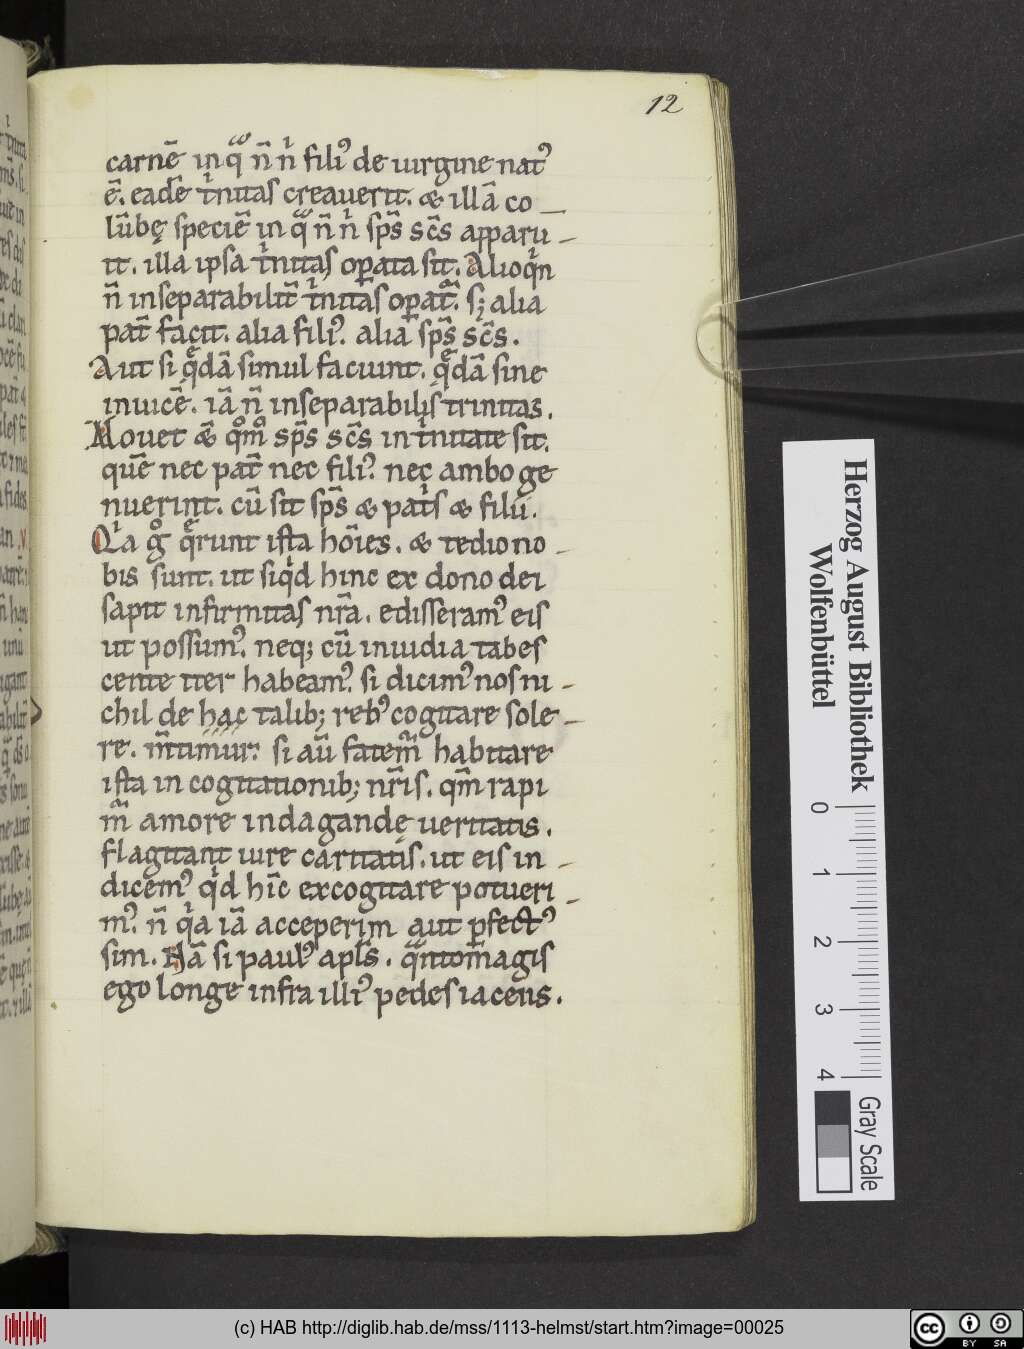 12
carnē inq̃ ñ nͥ filiꝰ de uirgine natꝰ
ē. eadē tͥnitas creauerit. & illā co
lūbę speciē in q̃ ñ nͥ sps̄ scs̄ apparu
it. illa ipsa tͥnitas oꝑata sit. Alioqͥn
ñ inseparabilit̄ tͥnitas oꝑat̃. s; alia
pat̄ facit. alia filiꝰ. alia sps̄ scs̄.
Aut si qͤdā simul faciunt. qͤdā sine
inuicē. iā ñ inseparabilis trinitas.
Mouet &̄ qͦmͦ sps̄ scs̄ in tͥnitate sit.
quē nec pat̄ nec filiꝰ. nec ambo ge
nuerint. cū sit sps̄ & patͥs & filii.
Qͥa gͦ qͤrunt ista hoīes. & tedio no
bis sunt. ut siqͥd hinc ex dono dei
sapit infirmitas nr̄a. edisseramꝰ eis
ut possumꝰ. neq; cū inuidia tabes
cente iter habeamꝰ. si dicimꝰ nos ni
chil de hac talib; rebꝰ cogitare sole
re. m̄timur. si aū fatem̃ habitare
ista in cogitationib; nr̄is. qm̄ rapi
m̃ amore indagandę ueritatis.
flagitant iure caritatis. ut eis in
dicemꝰ qͥd hīc excogitare potueri
mꝰ. ñ qͥa iā acceperim aut ꝑfectꝰ
sim. Nā si paulꝰ apls̄. qͣntomagis
ego longe infra illiꝰ pedes iacens.
Herzog August Bibliothek
Wolfenbüttel
0 1 2 3 4
Gray Scale
(c) HAB http://diglib.hab.de/mss/1113-helmst/start.htm?image=00025
cc BY SA